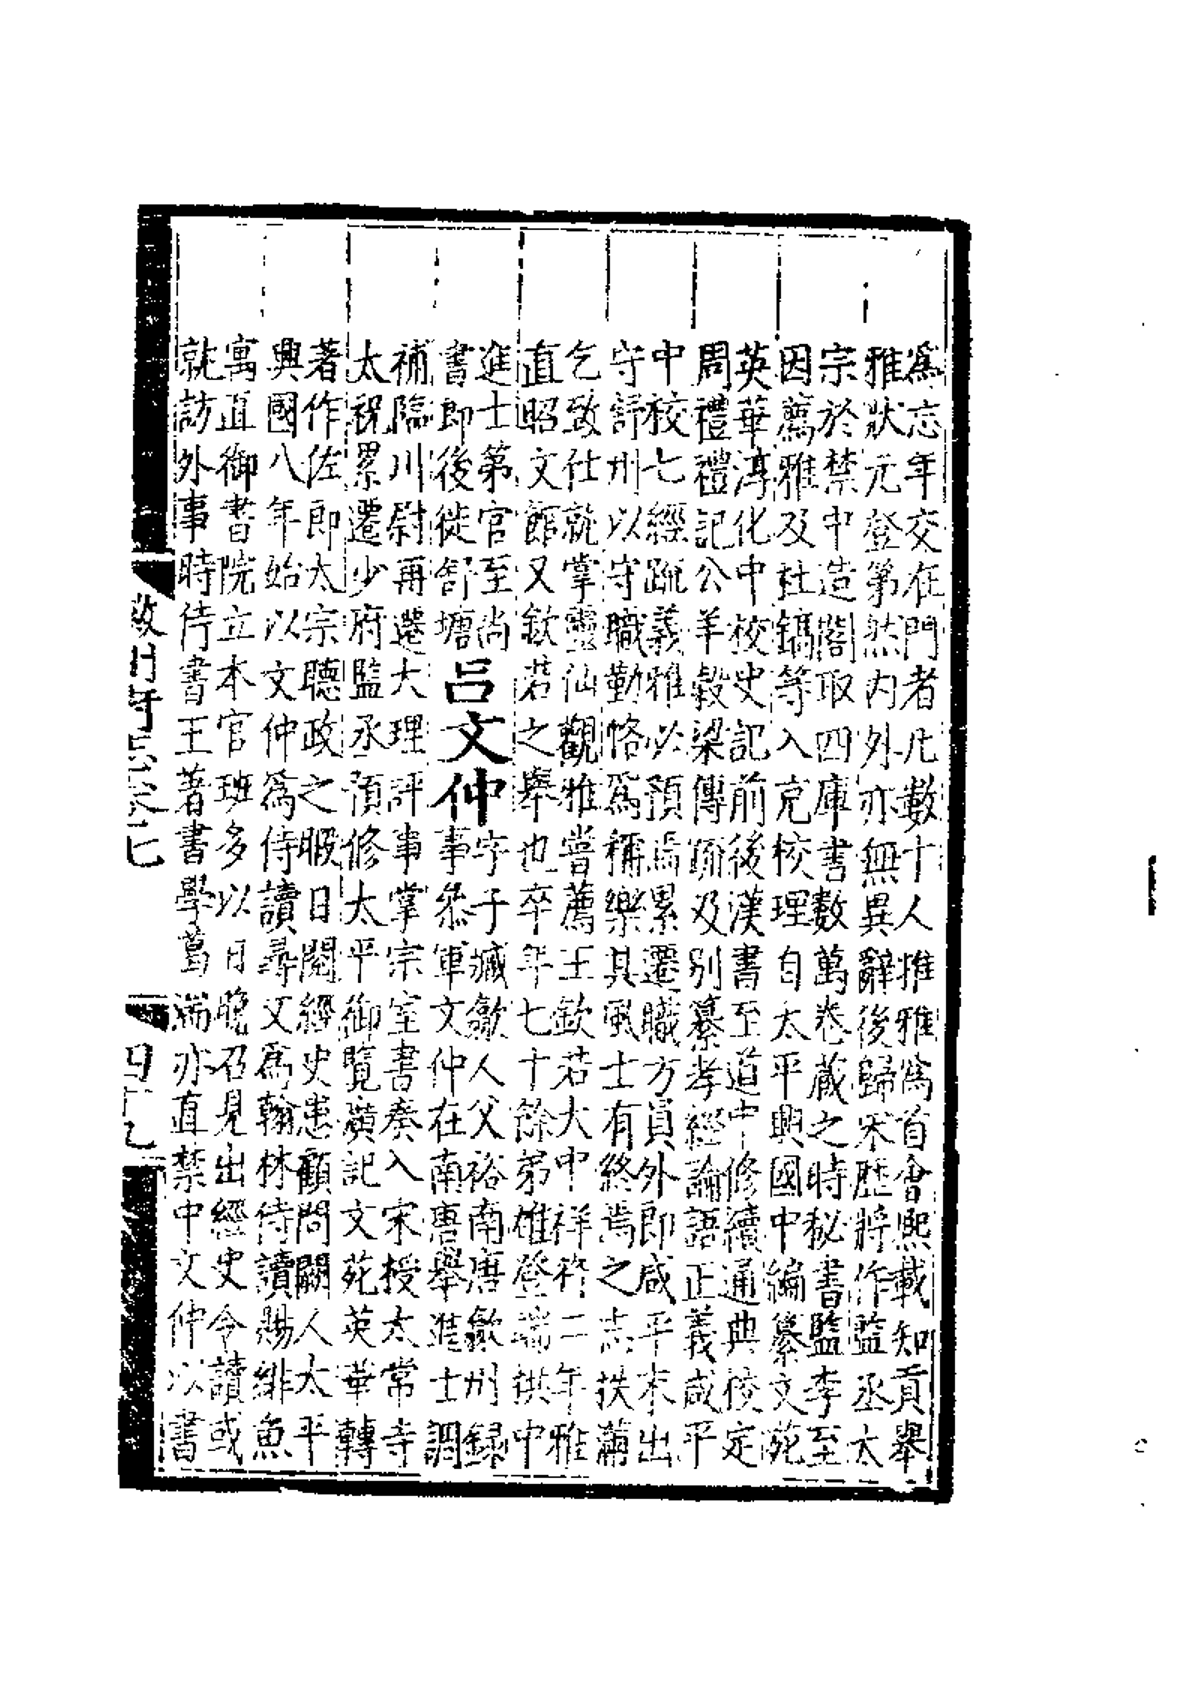 爲忘年交在門者凡數十人推雅爲首會熙載知貢舉
雅狀元登第然内外亦無異辭後歸宋歷將作監丞太
宗於禁中造閣取四庫書數萬卷藏之時秘書監李至
因薦雅及杜鎬等入充校理自太平興國中編纂文苑
英華淳化中校史記前後漢書至道中修續通典校定
周禮禮記公羊穀梁傳疏及别纂孝經論語正義咸平
中校七經疏義雅以預焉累遷職方員外郎咸平末出
守舒州以守職勤恪爲稱樂其風土有終焉之志扶滿
乞致仕就掌靈仙觀雅嘗薦王欽若大中祥符二年雅
直昭文館又欽若之舉也卒年七十餘弟雄登端拱中
進士第官至尚
書郎後徙舒塘
呂文仲
字子臧歙人父裕南唐歙州録
事叅軍文仲在南唐舉進士調
補臨川尉再遷大理評事掌宗室書奏入宋授太常寺
太祝累遷少府監丞預修太平御覽廣記文苑英華轉
著作佐郎太宗聽政之暇日閱經史患顧問闕人太平
興國八年始以文仲爲侍讀尋又爲翰林侍讀賜緋魚
寓直御書院立本官班多以日晚召見出經史令讀或
就訪外事時侍書王著書學葛端亦直禁中文仲以書
徽州府志卷之七
四十九